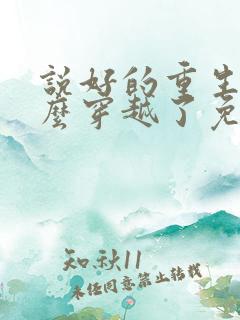 説好的重生
麼穿越了免
知秋11
未经同意禁止转载